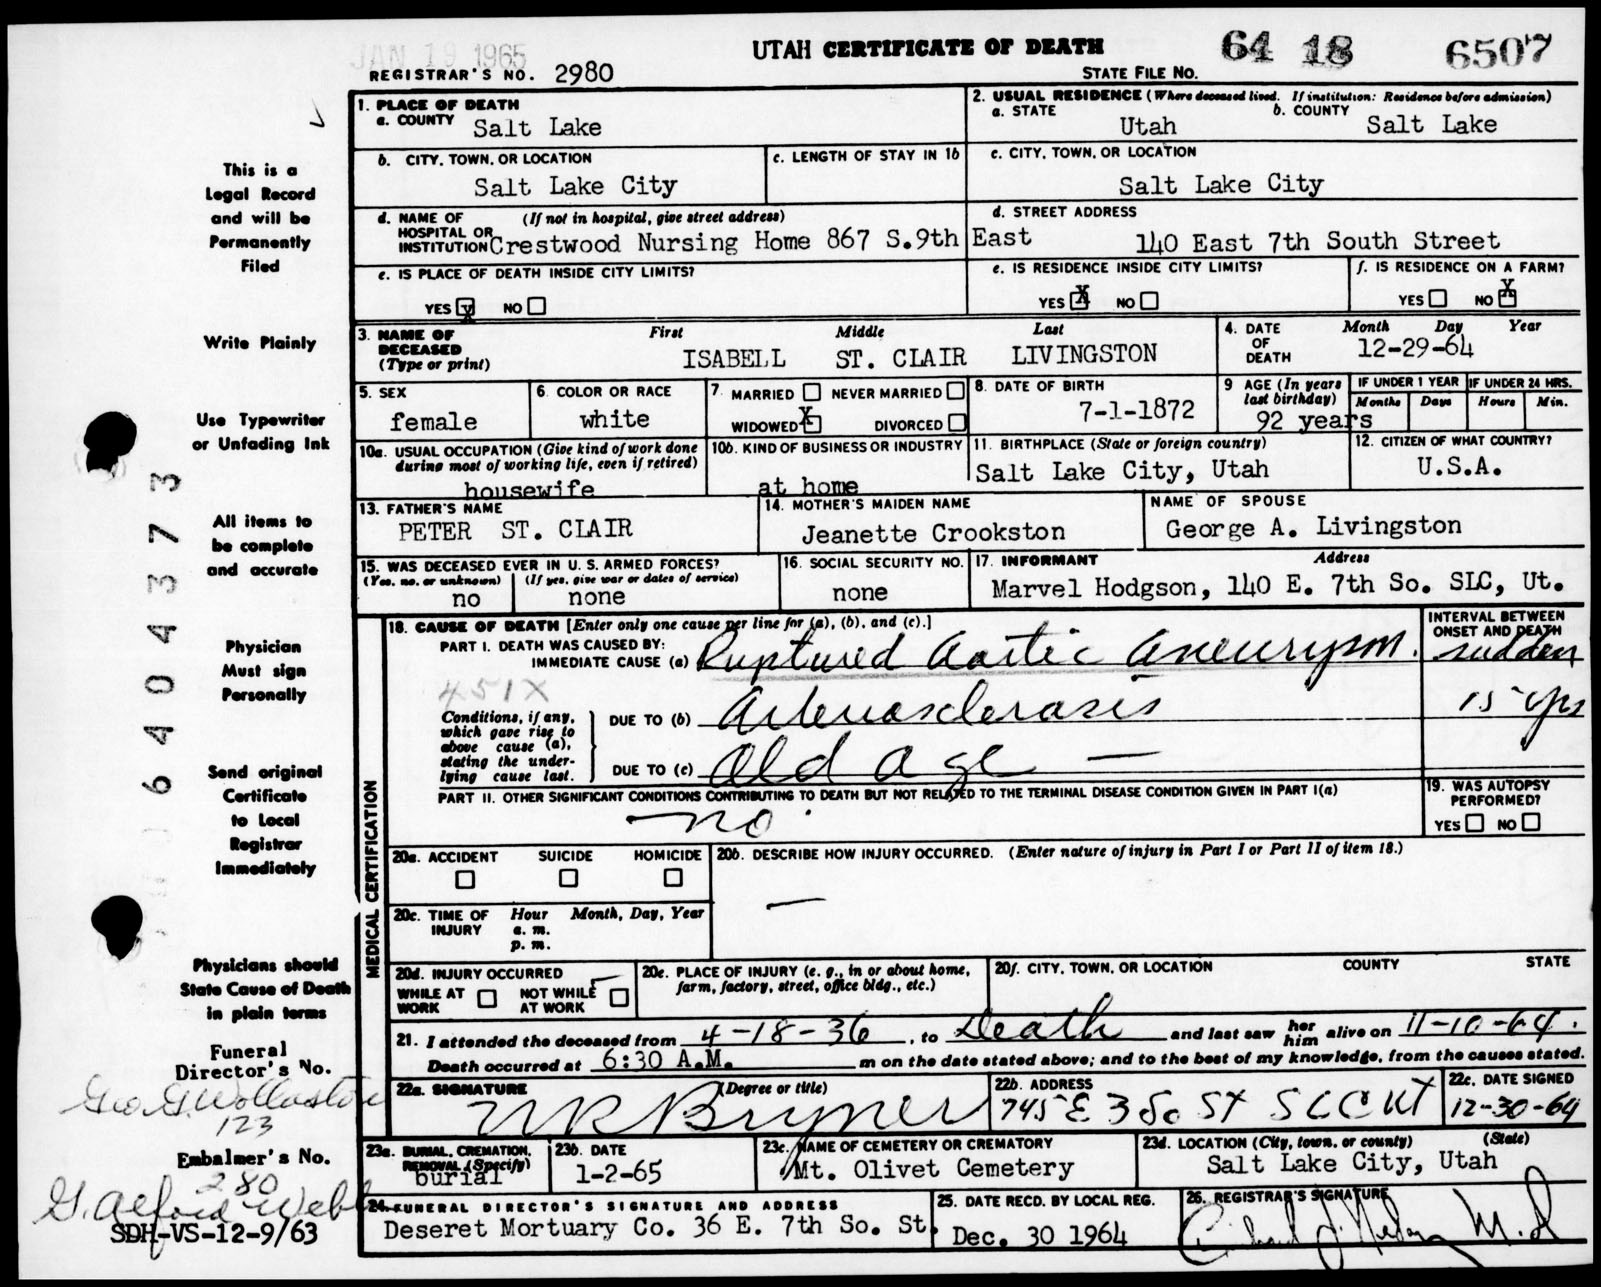 JAN 19 1965
UTAH CERTIFICATE OF DEATH
64 18 6507
REGISTRAR'S NO. 2980
STATE FILE NO.
1. PLACE OF DEATH
a. COUNTY Salt Lake
2. USUAL RESIDENCE (Where deceased lived. If institution: Residence before admission)
a. STATE Utah b. COUNTY Salt Lake
b. CITY, TOWN, OR LOCATION Salt Lake City
c. LENGTH OF STAY IN 1b
c. CITY, TOWN, OR LOCATION Salt Lake City
d. NAME OF HOSPITAL OR INSTITUTION (If not in hospital, give street address) Crestwood Nursing Home 867 S.9th East
d. STREET ADDRESS 140 East 7th South Street
e. IS PLACE OF DEATH INSIDE CITY LIMITS?
YES X NO
e. IS RESIDENCE INSIDE CITY LIMITS?
YES X NO
f. IS RESIDENCE ON A FARM?
YES NO X
3. NAME OF DECEASED (Type or print)
First Middle Last
ISABELL ST. CLAIR LIVINGSTON
4. DATE OF DEATH Month Day Year
12-29-64
5. SEX female
6. COLOR OR RACE white
7. MARRIED NEVER MARRIED
WIDOWED X DIVORCED
8. DATE OF BIRTH 7-1-1872
9 AGE (In years last birthday) 92 years
IF UNDER 1 YEAR Months Days
IF UNDER 24 HRS. Hours Min.
10a. USUAL OCCUPATION (Give kind of work done during most of working life, even if retired)
housewife
10b. KIND OF BUSINESS OR INDUSTRY
at home
11. BIRTHPLACE (State or foreign country)
Salt Lake City, Utah
12. CITIZEN OF WHAT COUNTRY?
U.S.A.
13. FATHER'S NAME
PETER ST. CLAIR
14. MOTHER'S MAIDEN NAME
Jeanette Crookston
NAME OF SPOUSE
George A. Livingston
15. WAS DECEASED EVER IN U. S. ARMED FORCES?
(Yes, no, or unknown) (If yes, give war or dates of service)
no none
16. SOCIAL SECURITY NO.
none
17. INFORMANT Address
Marvel Hodgson, 140 E. 7th So. SLC, Ut.
MEDICAL CERTIFICATION
18. CAUSE OF DEATH [Enter only one cause per line for (a), (b), and (c).]
INTERVAL BETWEEN ONSET AND DEATH
PART I. DEATH WAS CAUSED BY:
IMMEDIATE CAUSE (a) Ruptured Aortic Aneurysm. sudden
451X
Conditions, if any, which gave rise to above cause (a), stating the underlying cause last.
DUE TO (b) Arteriosclerosis 15 yrs
DUE TO (c) Old age —
PART II. OTHER SIGNIFICANT CONDITIONS CONTRIBUTING TO DEATH BUT NOT RELATED TO THE TERMINAL DISEASE CONDITION GIVEN IN PART I(a)
no
19. WAS AUTOPSY PERFORMED?
YES NO
20a. ACCIDENT SUICIDE HOMICIDE
20b. DESCRIBE HOW INJURY OCCURRED. (Enter nature of injury in Part I or Part II of item 18.)
—
20c. TIME OF INJURY Hour Month, Day, Year
a. m.
p. m.
20d. INJURY OCCURRED
WHILE AT WORK NOT WHILE AT WORK
20e. PLACE OF INJURY (e. g., in or about home, farm, factory, street, office bldg., etc.)
20f. CITY, TOWN, OR LOCATION COUNTY STATE
21. I attended the deceased from 4-18-36, to Death and last saw her him alive on 11-10-64.
Death occurred at 6:30 A.M. m on the date stated above; and to the best of my knowledge, from the causes stated.
22a. SIGNATURE (Degree or title)
Bryner
22b. ADDRESS
745 E 3 So St SLC UT
22c. DATE SIGNED
12-30-64
23a. BURIAL, CREMATION, REMOVAL (Specify)
burial
23b. DATE
1-2-65
23c. NAME OF CEMETERY OR CREMATORY
Mt. Olivet Cemetery
23d. LOCATION (City, town, or county) (State)
Salt Lake City, Utah
24. FUNERAL DIRECTOR'S SIGNATURE AND ADDRESS
Deseret Mortuary Co. 36 E. 7th So. St.
25. DATE RECD. BY LOCAL REG.
Dec. 30 1964
26. REGISTRAR'S SIGNATURE
M.D
This is a
Legal Record
and will be
Permanently
Filed
Write Plainly
Use Typewriter
or Unfading Ink
All items to
be complete
and accurate
Physician
Must sign
Personally
Send original
Certificate
to Local
Registrar
Immediately
Physicians should
State Cause of Death
in plain terms
Funeral
Director's No.
Geo. G. Wollaston
123
Embalmer's No.
280
G. Alford Webb
SDH-VS-12-9/63
64043773